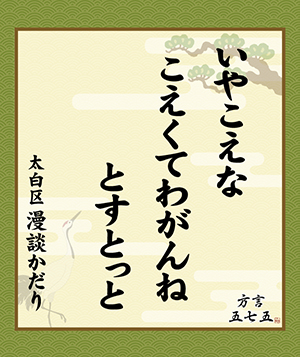 いやこえな
こえくてわがんね
とすとっと
太白区 漫談かだり
方言
五七五